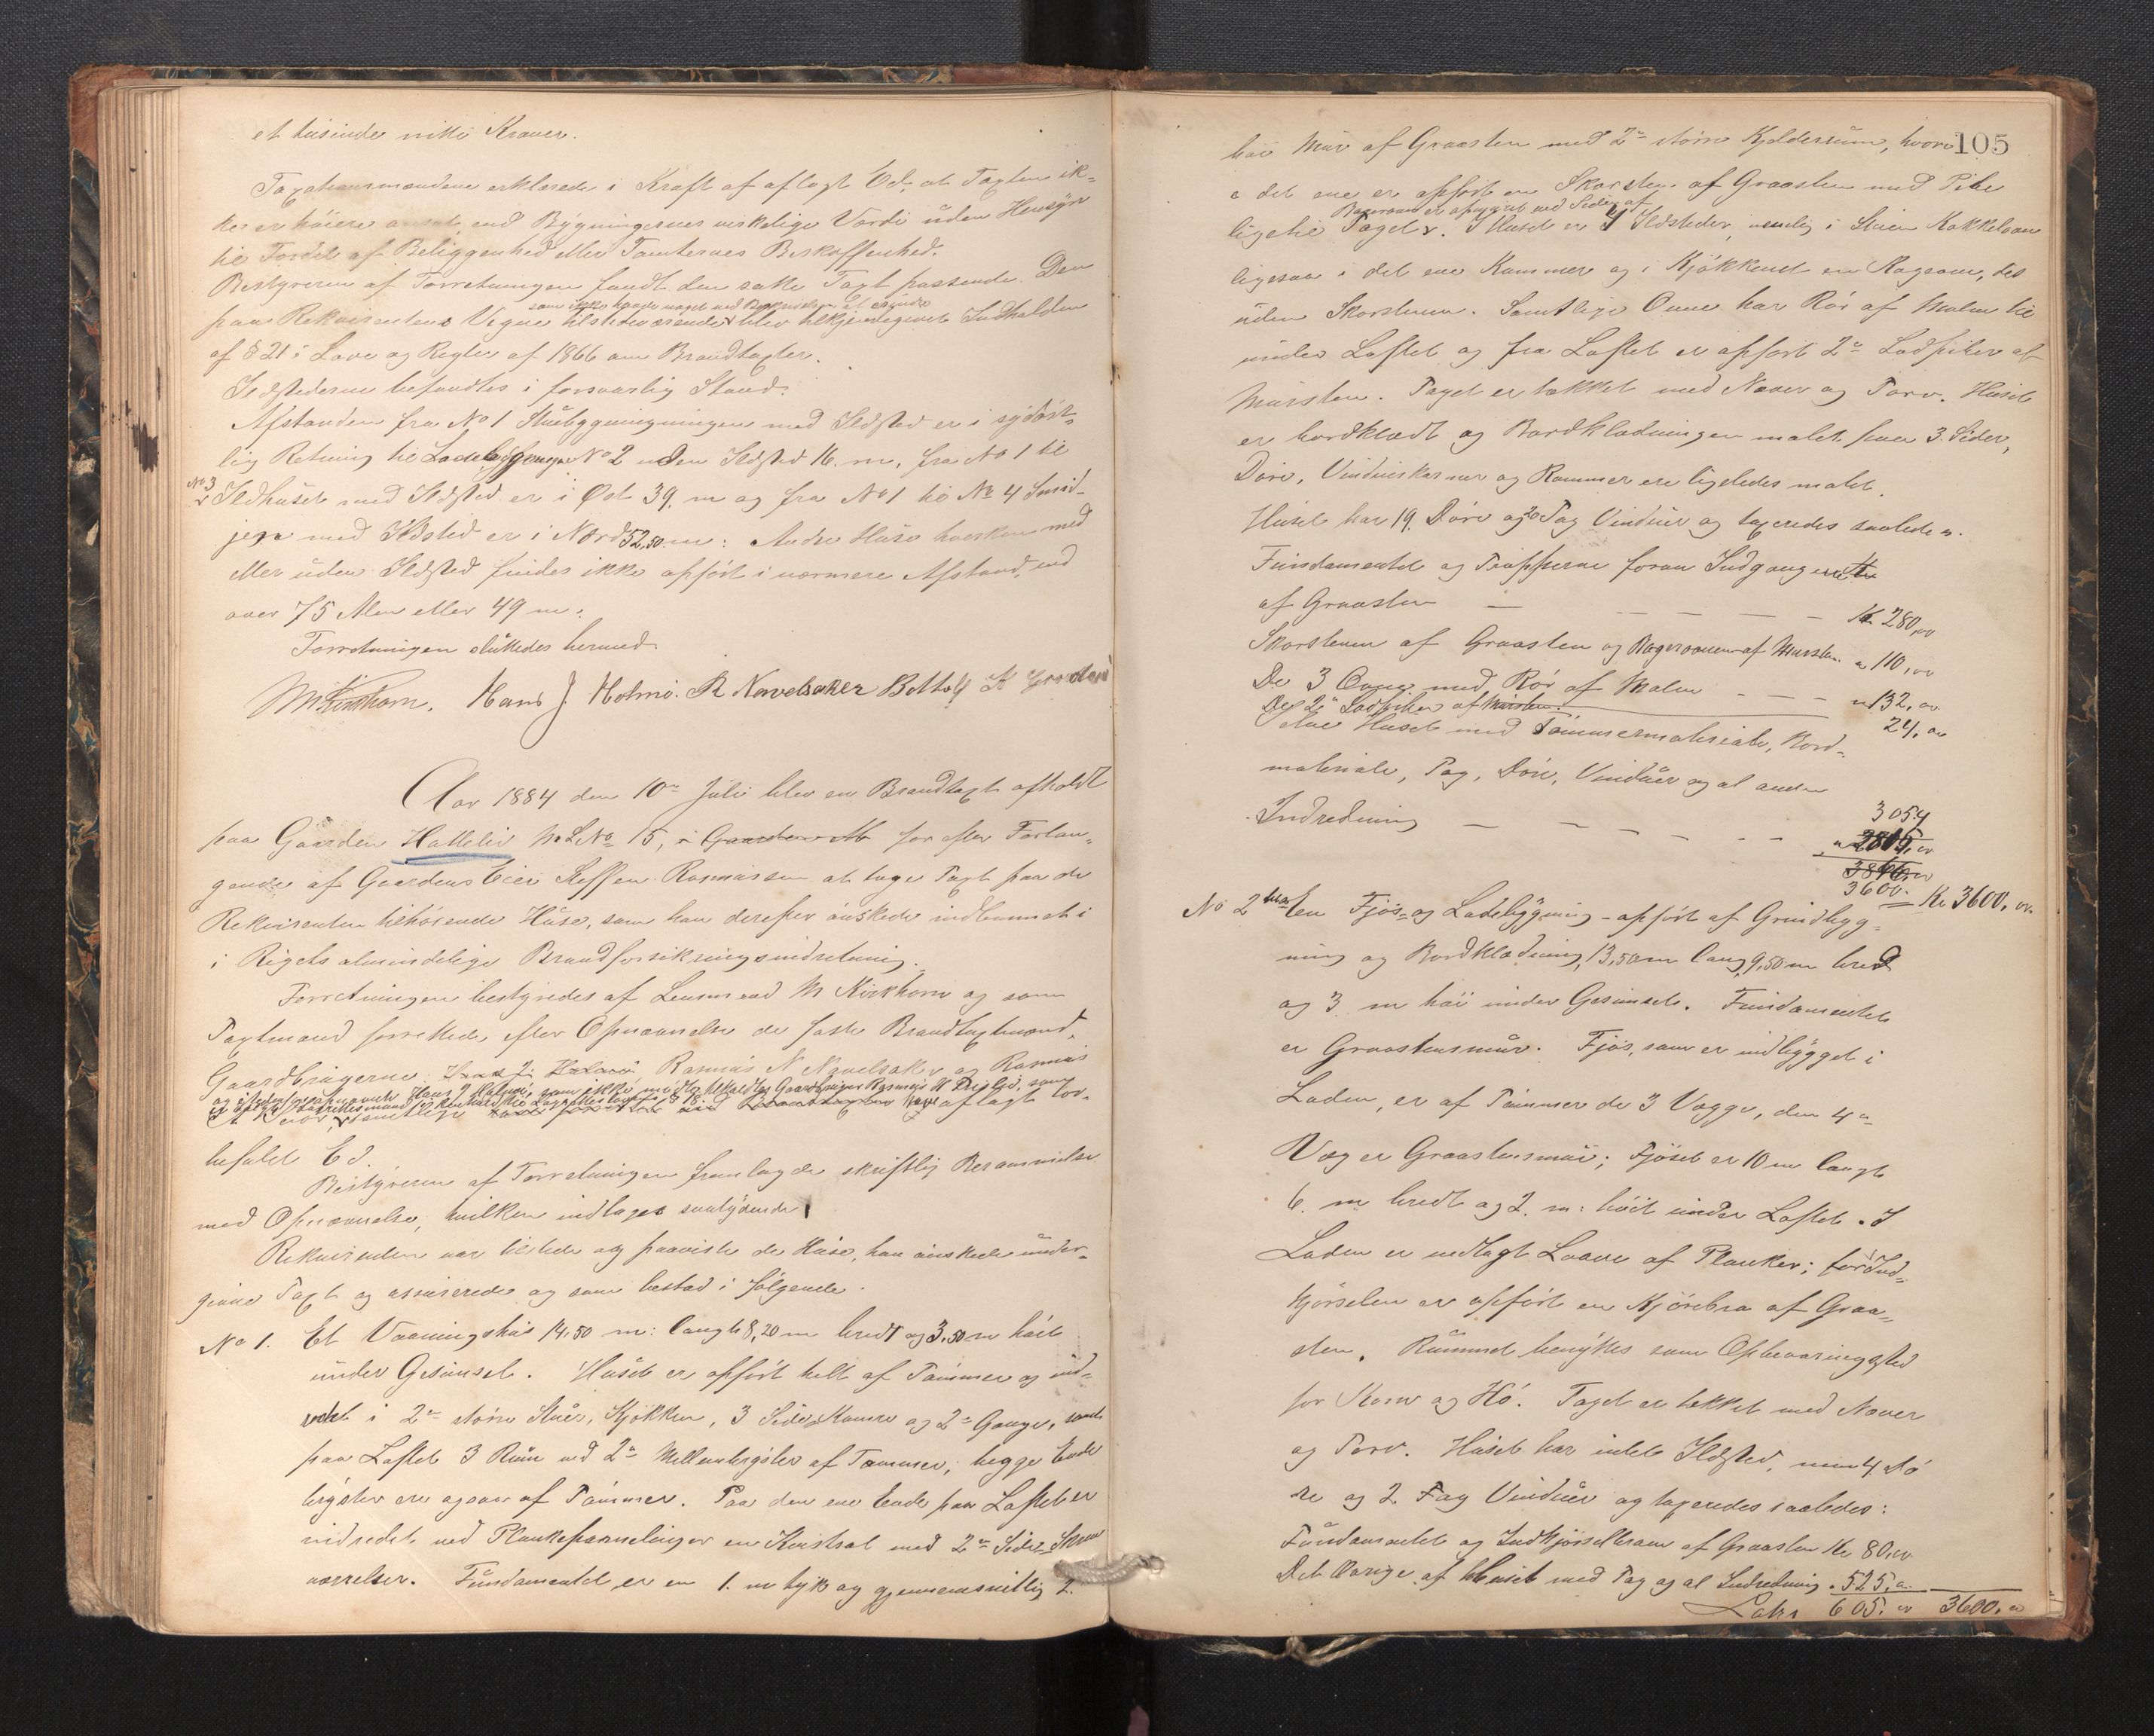 et tusinde nitti Kroner.
Taxationsmændene erklærede i Kraft af aflagt Ed, at Taxten ik-
ke er høiere ansat end Bygningernes virkelige Værdi uden Hensyn
til Fordel af Beliggenhed eller Tomternes Beskaffenhed.
Bestyreren af Forretningen fandt den satte Taxt passende. Den
som ikke havde noget ved Beskrivelsen at erindre
paa Rekvirentens Vegne tilstedeværende blev tilkjendegivet Indholden
af § 21 i Love og Regler af 1866 om Brandtaxter.
Ildstederne befandtes i forsvarlig Stand.
Afstanden fra No 1 Stuebygningningen med Ildsted er i sydøst-
lig Retning til Ladebygningen No 2 uden Ildsted 16. m, fra No 1 til
No 3
Ildhuset med Ildsted er i Øst 39. m og fra No 1 til No 4 Smid-
jen med Ildsted er i Nord 52,50 m: Andre Huse hverken med
eller uden Ildsted findes ikke opført i nærmere Afstand, end
over 75 Alen eller 49 m.
Forretningen sluttedes hermed
M Kirkhorn. Hans J. Holmö. R Navelsaker Bottolf K
Aar 1884 den 10de Juli blev en Brandtaxt afholdt
paa Gaarden Hattelid M. L. No 15, for efter Forlan-
gende af Gaardens Eier Steffen Rasmussen at tage Taxt paa de
Rekvirenten tilhørende Huse, som han derefter ønskede indlemmet i
i Rigets almindelige Brandforsikringsindretning.
Forretningen bestyredes af Lensmand M Kirkhorn og som
Taxtmænd forrettede efter Opnævnelse de faste Brandtaxtmænd,
Gaardbrugerne Rasmus N Navelsaker og Rasmus
og istedenfor opnævnte Hans J Holmö, som ikke mødte tilkaldtes Gaardbruger Rasmus
samtlige have aflagt lov-
befalet Ed.
Bestyreren af Forretningen fremlagde skriftlig Berammelse
med Opnævnelse, hvilken indtages saalydende
Rekvirenten var tilstede og paaviste de Huse, han ønskede under-
given Taxt og assurerede og som bestod i følgende.
No 1. Et Vaaningshus 14,50 m: langt 8,20 m bredt og 3,50 m høit
under Gesimset. Huset er opført helt af Tømmer og ind-
redet i 2de større Stuer, Kjøkken, 3 Side Kamre og 2de Gange, samt
paa Loftet 3 Rum ved 2de Mellembryster af Tømmer; begge Ende
bryster ere ogsaa af Tømmer. Paa den ene Ende paa Loftet er
indredet ved Plankepannelinger en Kvistsal med 2de Side Skum
værelser. Fundamentet er en 1. m tyk og gjennemsnitlig 2.
105
høi Mur af Graasten med 2de større Kjelderrum, hvori
i det ene er opført en Skorsten af Graasten med Pibe
Bagerovn er opmuret ved Siden af
ligetil Taget. I Huset er 4 Ildsteder, nemlig i Stuen Kakkelovn
ligesaa i det ene Kammer og i Kjøkkenet en Kogeovn, des
uden Skorstenen. Samtlige Ovne har Rør af Malm til
under Loftet og fra Loftet er opført 2de Lodpiber af
Mursten. Taget er tækket med Næver og Torv. Huset
er bordklædt og Bordklædningen malet paa 3. Sider,
Døre, Vindueskarmer og Rammer ere ligeledes malet.
Huset har 19. Døre og 20 Fag Vinduer og taxeredes saaledes.
Fundamentet og Trapperne foran Indgangene
af Graasten — — — — — Kr 280,00
Skorstenen af Graasten og Bagerovnen af Mursten. " 110,00
De 3 Ovne med Rør af Malm — — — " 132,00
De 2de Lodpiber af Mursten. 24,00
Selve Huset med Tømmermateriale, Bord-
materiale, Tag, Døre, Vinduer og al anden
Indredning — — — — — — 3054
" 2805,00
3600. = Kr 3600,00.
No 2 En Fjøs- og Ladebygning - opført af Grindbyg-
ning og Bordklædning, 13,50 m lang, 9,50 m bred
og 3. m høi under Gesimset. Fundamentet
er Graastensmur. Fjøs, som er indbygget i
Laden, er af Tømmer de 3 Vægge, den 4de
Væg er Graastensmur; Fjøset er 10 m langt
6. m bredt og 2. m: høit under Loftet. I
Laden er nedlagt Laave af Planker; før Ind-
kjørselen er opført en Kjørebro af Graa-
sten. Rummet benyttes som Opbevaringssted
for Korn og Hø. Taget er tækket med Næver
og Torv. Huset har intet Ildsted, men 4 Dø
re og 2. Fag Vinduer og taxeredes saaledes:
Fundamentet og Indkjørselbroen af Graasten Kr 80,00
Det Øvrige af Huset med Tag og al Indredning " 525,00
Lates 605.00 3600.00